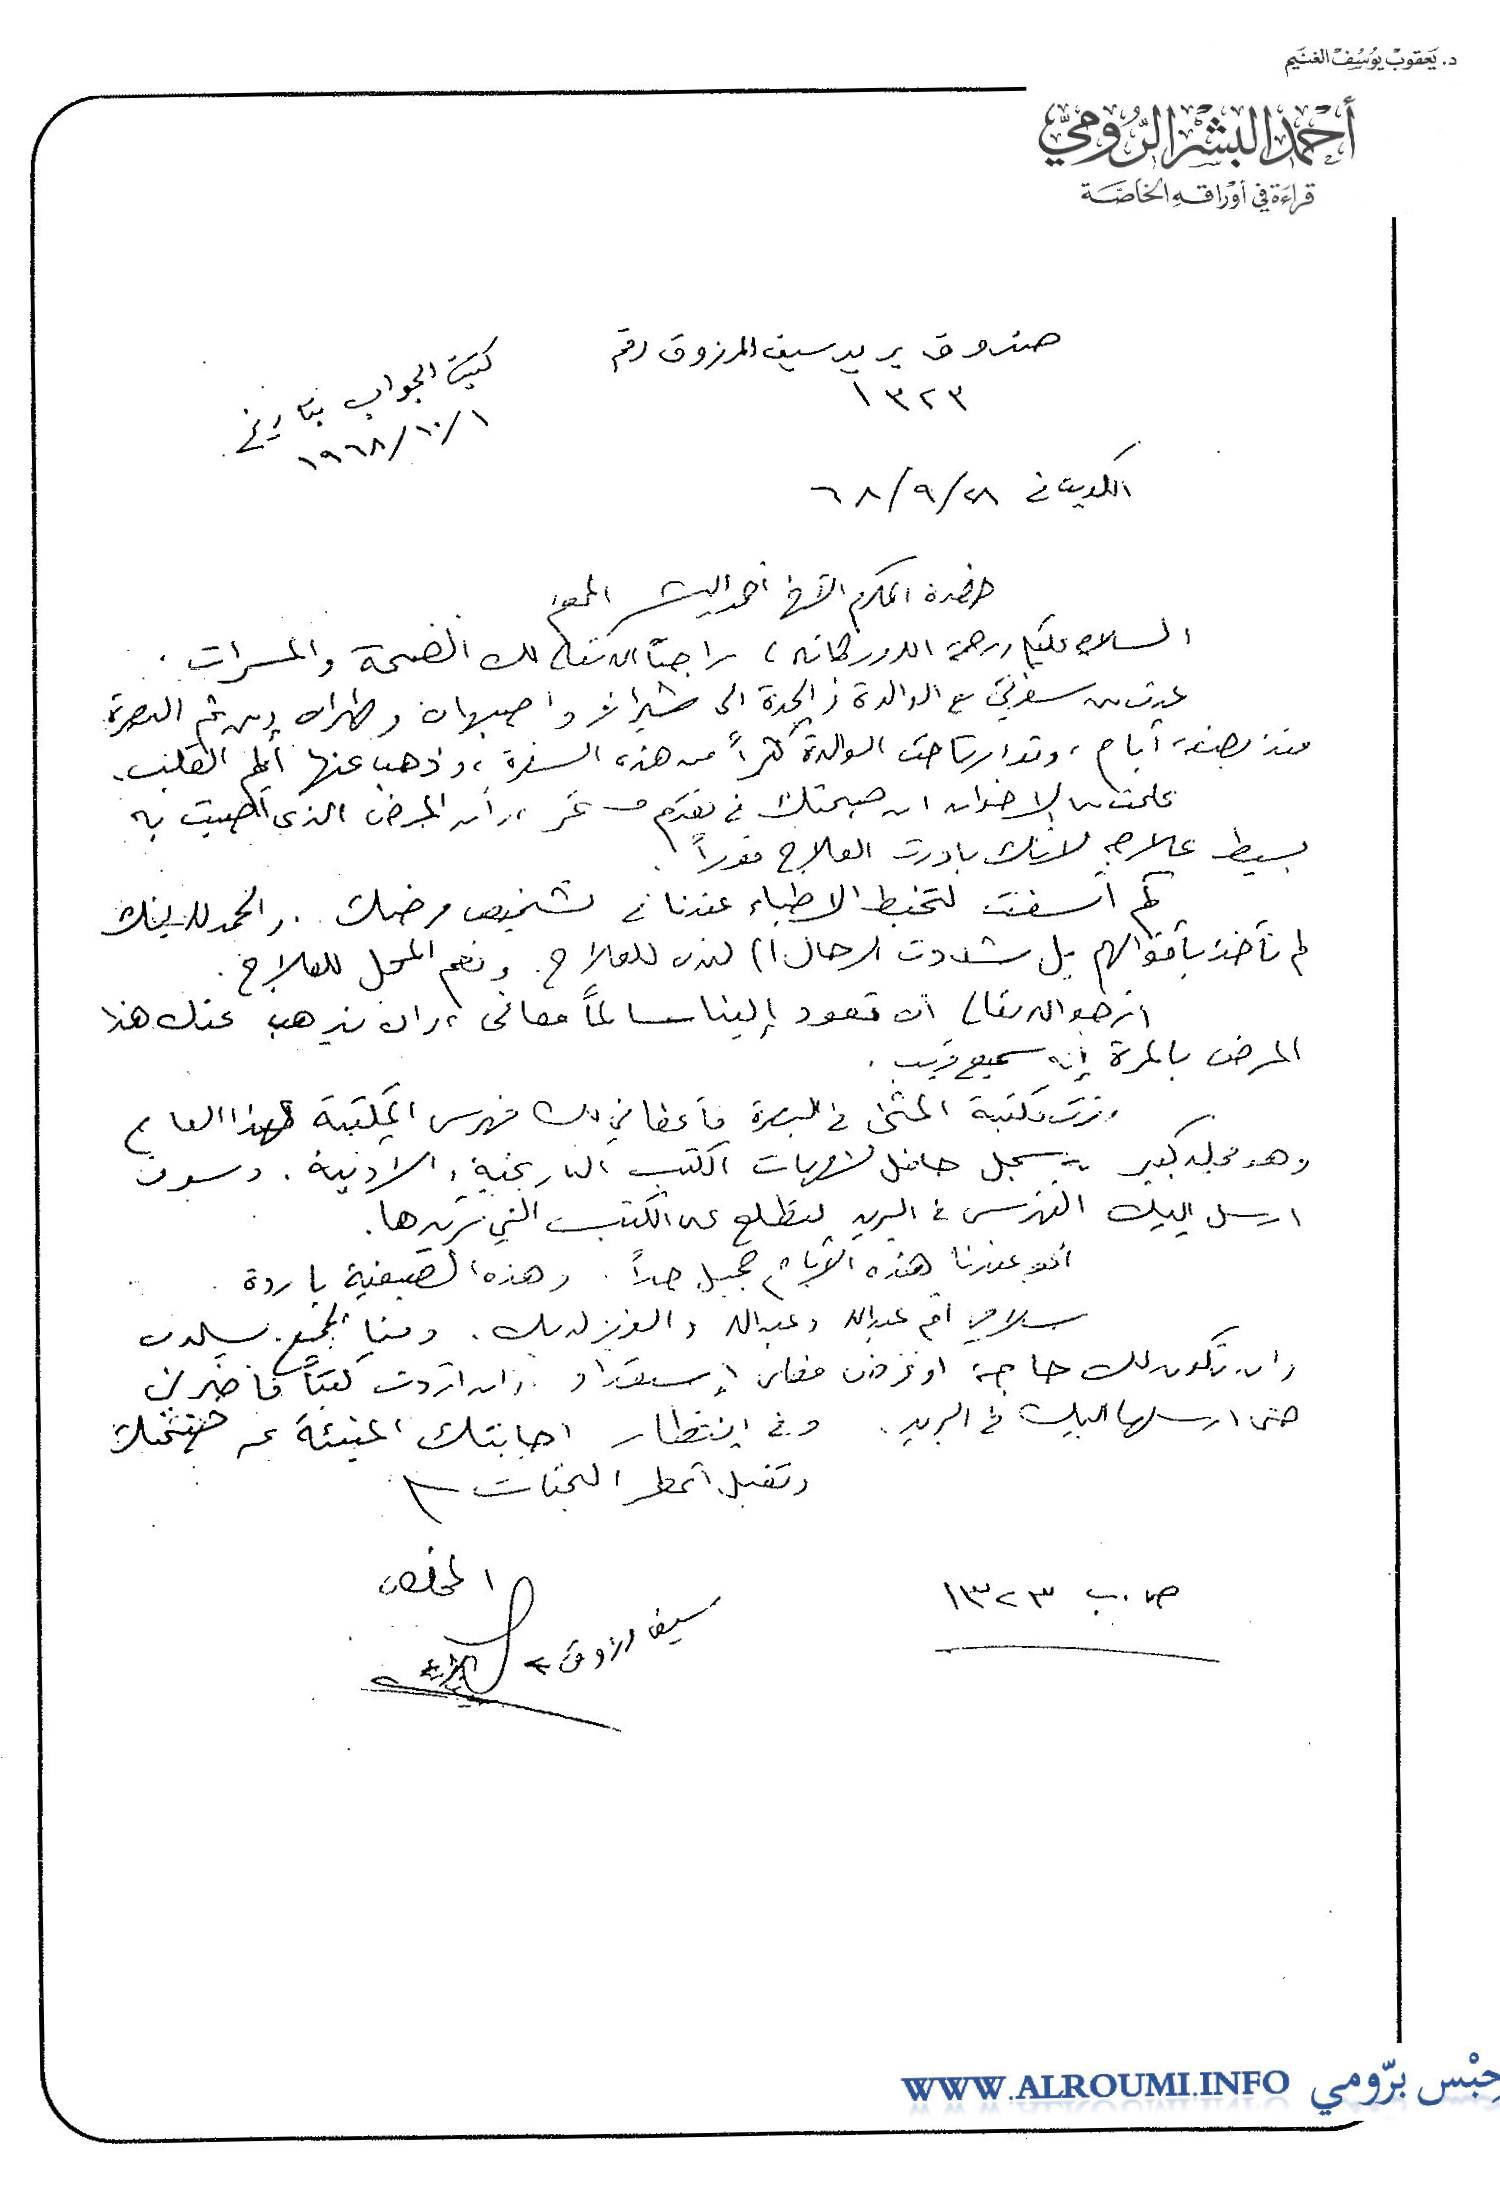 د. يَعقوب يوُسُف الغنَيم
أحمد البشر الرّومي
قراءَة في أوْراقه الخاصَّة
صندوق بريد سيف المرزوق رقم
١٣٢٣
كتبت الجواب بتاريخ
١٩٦٨/١٠/١
الكويت في ٦٨/٩/٢٨
حضرة المكرم الأخ أحمد البشر المحترم
السلام عليكم ورحمة الله وبركاته، راجياً الله تعالى لك الصحة والمسرات.
عدت من سفرتي مع الوالدة والجدة الى شيراز واصبهان وطهران ومن ثم البصرة
منذ بضعة أيام، وقد ارتاحت الوالدة كثيراً من هذه السفرة، وذهب عنها ألم القلب.
علمت من الاخوان ان صحتك في تقدم مستمر، وأن المرض الذي أصبت به
بسيط علاجه لأنك بادرت العلاج فوراً.
كم أسفت لتخبط الاطباء عندنا في تشخيص مرضك. والحمد لله إنك
لم تأخذ بأقوالهم بل شددت الرحال الى لندن للعلاج. ونعم المحل للعلاج.
ارجو الله تعالى أن تعود إلينا سالماً معافى، وان يذهب عنك هذا
المرض بالمرة إنه سميع قريب.
وزرت مكتبة المثنى في البصرة فأعطاني لك فهرس المكتبة لهذا العام
وهو مجلد كبير سجل حافل لأمهات الكتب التاريخية والادبية. وسوف
ارسل اليك الفهرس في البريد لتطلع على الكتب التي تريدها.
الجو عندنا هذه الأيام جميل جداً. وهذه الصيفية باردة.
سلامي أم عبدالله وعبدالله والعزيز لديك. ومنا الجميع يسلمون
وان تكون لك حاجة او غرض فعلى إستعداد. وان اردت كتباً فاخبرني
حتى ارسلها اليك في البريد. وفي إنتظار اجابتك المنبئة عن صحتك
وتقبل أعطر التحيات
المخلص
سيف مرزوق
ص.ب ١٣٢٣
WWW.ALROUMI.INFO حِبْس برّومي